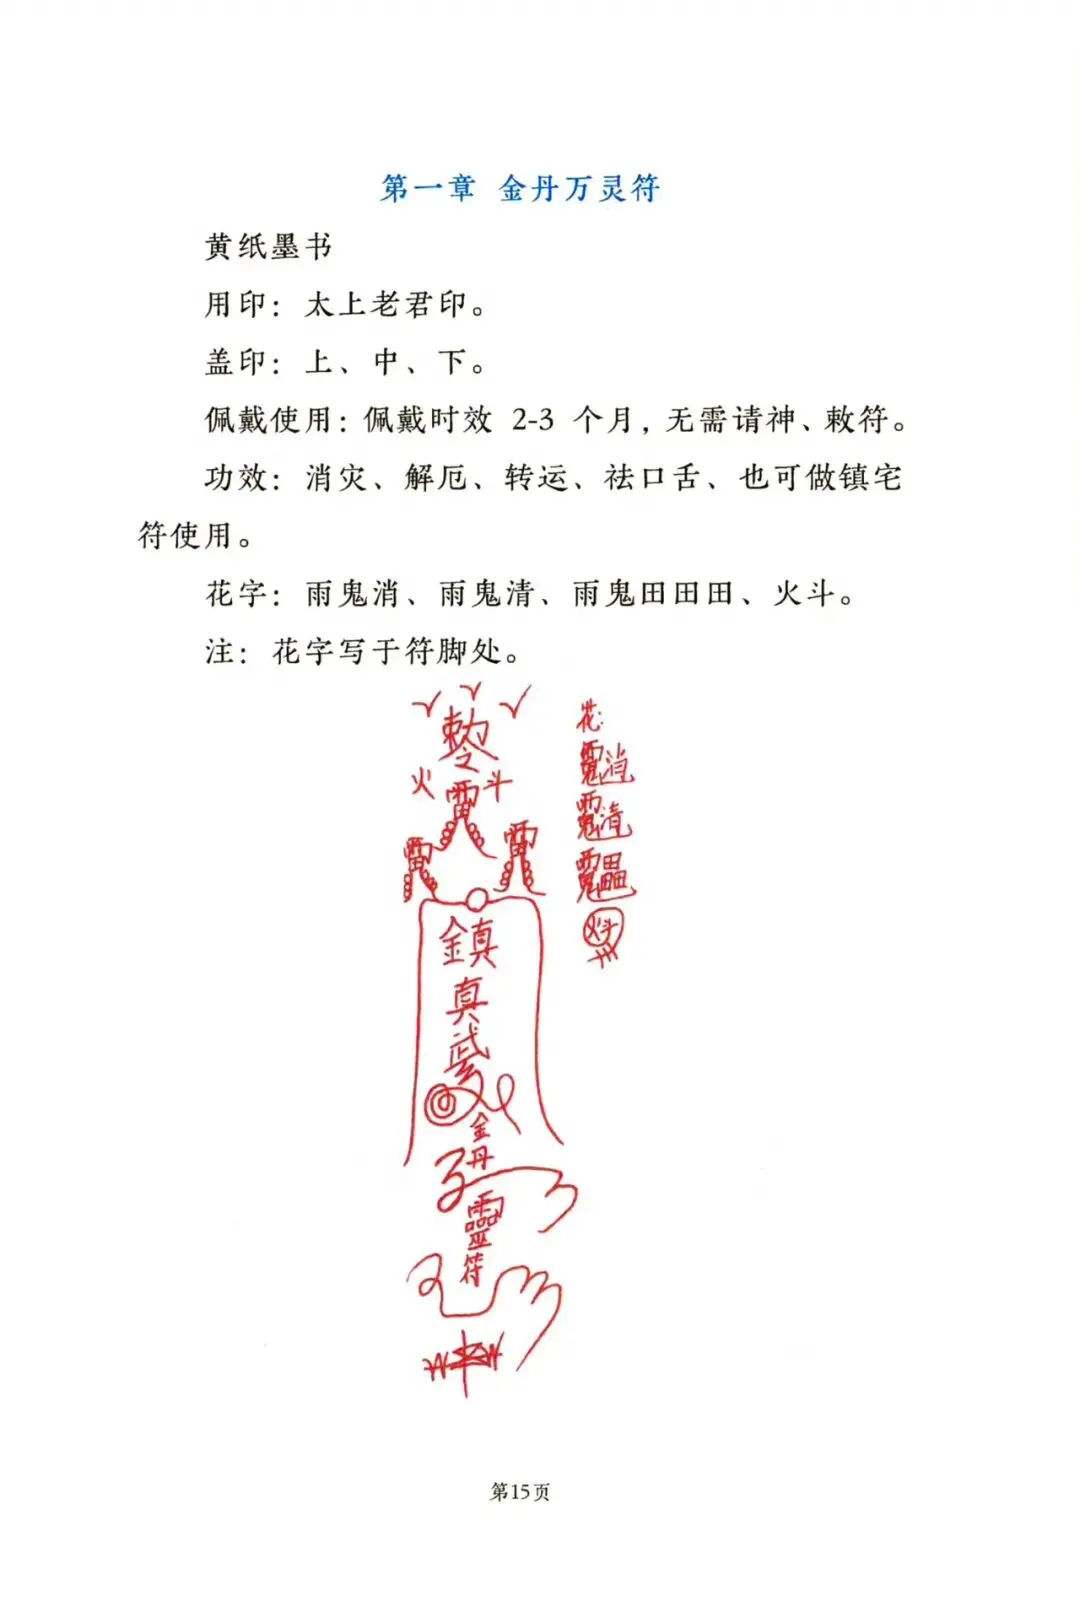 第一章 金丹万灵符
黄纸墨书
用印：太上老君印。
盖印：上、中、下。
佩戴使用：佩戴时效 2-3 个月，无需请神、敕符。
功效：消灾、解厄、转运、祛口舌、也可做镇宅
符使用。
花字：雨鬼消、雨鬼清、雨鬼田田田、火斗。
注：花字写于符脚处。
火 斗
鎮真
真
武
金
丹
靈
符
花:
火斗
第15页